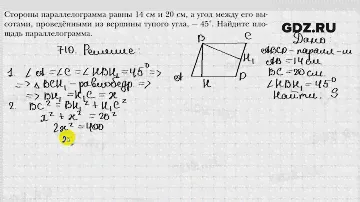 Стороны параллелограмма равны 14 см и 20 см, а угол между его вы-
сотами, проведёнными из вершины тупого угла, – 45°. Найдите пло-
щадь параллелограмма.
GDZ.RU
710. Решение
Дано
1. ∠A=∠C=∠HBH₁=45° =>
=> △BCH₁ – равнобедр. =>
=> BH₁=H₁C=x
2. BC²=BH₁²+H₁C²
x²+x²=20²
2x²=400
B C
H₁
A H D
ABCD-паралл-м
AB=14см
BC=20см
∠HBH₁=45°
Найти: S